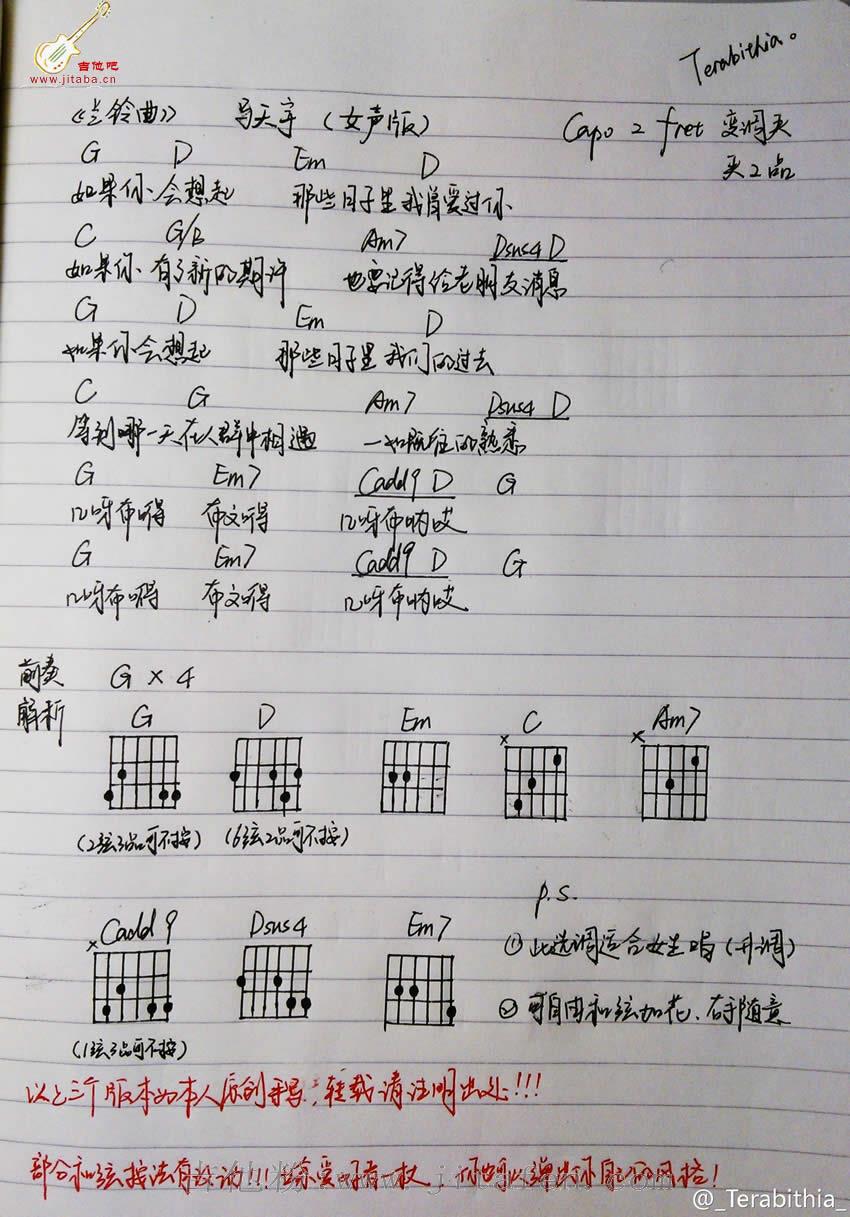 吉他吧
www.jitaba.cn
Terabithia。
《兰铃曲》 马天宇 (女声版) Capo 2 fret 变调夹
夹2品
G D Em D
如果你会想起 那些日子里我曾爱过你
C G/B Am7 Dsus4 D
如果你有了新的期许 也要记得给老朋友消息
G D Em D
如果你会想起 那些日子里我们的过去
C G Am7 Dsus4 D
等到哪一天在人群中相遇 一如既往的熟悉
G Em7 Cadd9 D G
几呀布嘚 布文嘚 几呀布呐哎
G Em7 Cadd9 D G
几呀布嘚 布文嘚 几呀布呐哎
前奏 G × 4
解析
G D Em C Am7
× ×
(2弦3品可不按) (6弦2品可不按)
Cadd9 Dsus4 Em7
×
(1弦3品可不按)
p.s.
① 此选调适合女生唱(升调)
② 可自由和弦加花、右手随意
以上三个版本如本人原创手写,转载请注明出处!!!
部分和弦按法有改动!!! 你也可以弹出你自己的风格!
www.jitafen.com
@_Terabithia_